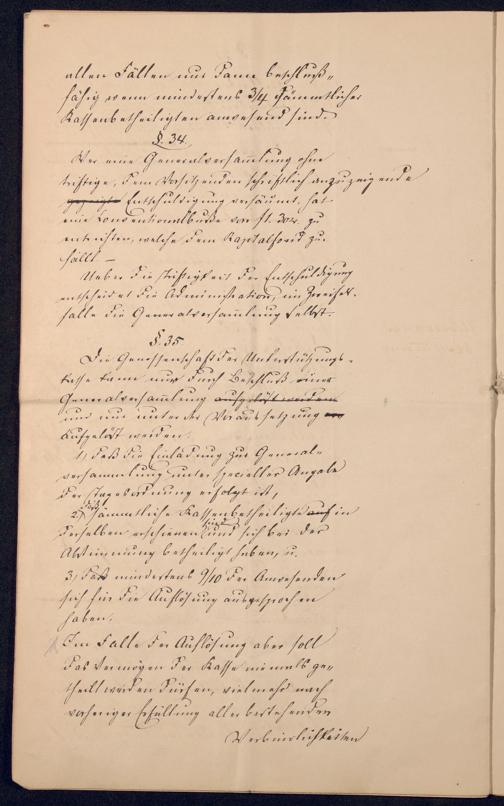 allen Fällen nur dann beschluß-
fähig wenn mindestens 3/4 sämmtlicher
Kassenbetheiligten anwesend sind.
§. 34.
Wer eine Generalversammlung ohne
triftige, dem Vorsitzenden schriftlich anzuzeigende
Entschuldigung versäumt, hat
eine Conventionalbuße von zu
entrichten, welche dem Kapitalfond zu-
fällt —
Ueber die Triftigkeit der Entschuldigung
entscheidet die Administration, im Zweifels-
falle die Generalversammlung selbst.
§. 35
Die Genossenschaft der Unterstützungs-
kasse kann nur durch Beschluß einer
Generalversammlung aufgelöst werden
und nur unter der Voraussetzung
Aufgelöst werden:
1) daß die Einladung zur General-
versammlung unter specieller Angabe
der Tagesordnung erfolgt ist,
2) daß sämmtliche Kassenbetheiligte auf in
derselben erschienen sind und sich bei der
Abstimmung betheiligt haben, u.
3) daß mindestens 9/10 der Anwesenden
sich für die Auflösung ausgesprochen
haben.
Im Falle der Auflösung aber soll
das Vermögen der Kasse niemals ge-
theilt werden dürfen, vielmehr nach
vorheriger Erfüllung aller bestehenden
Verbindlichkeiten